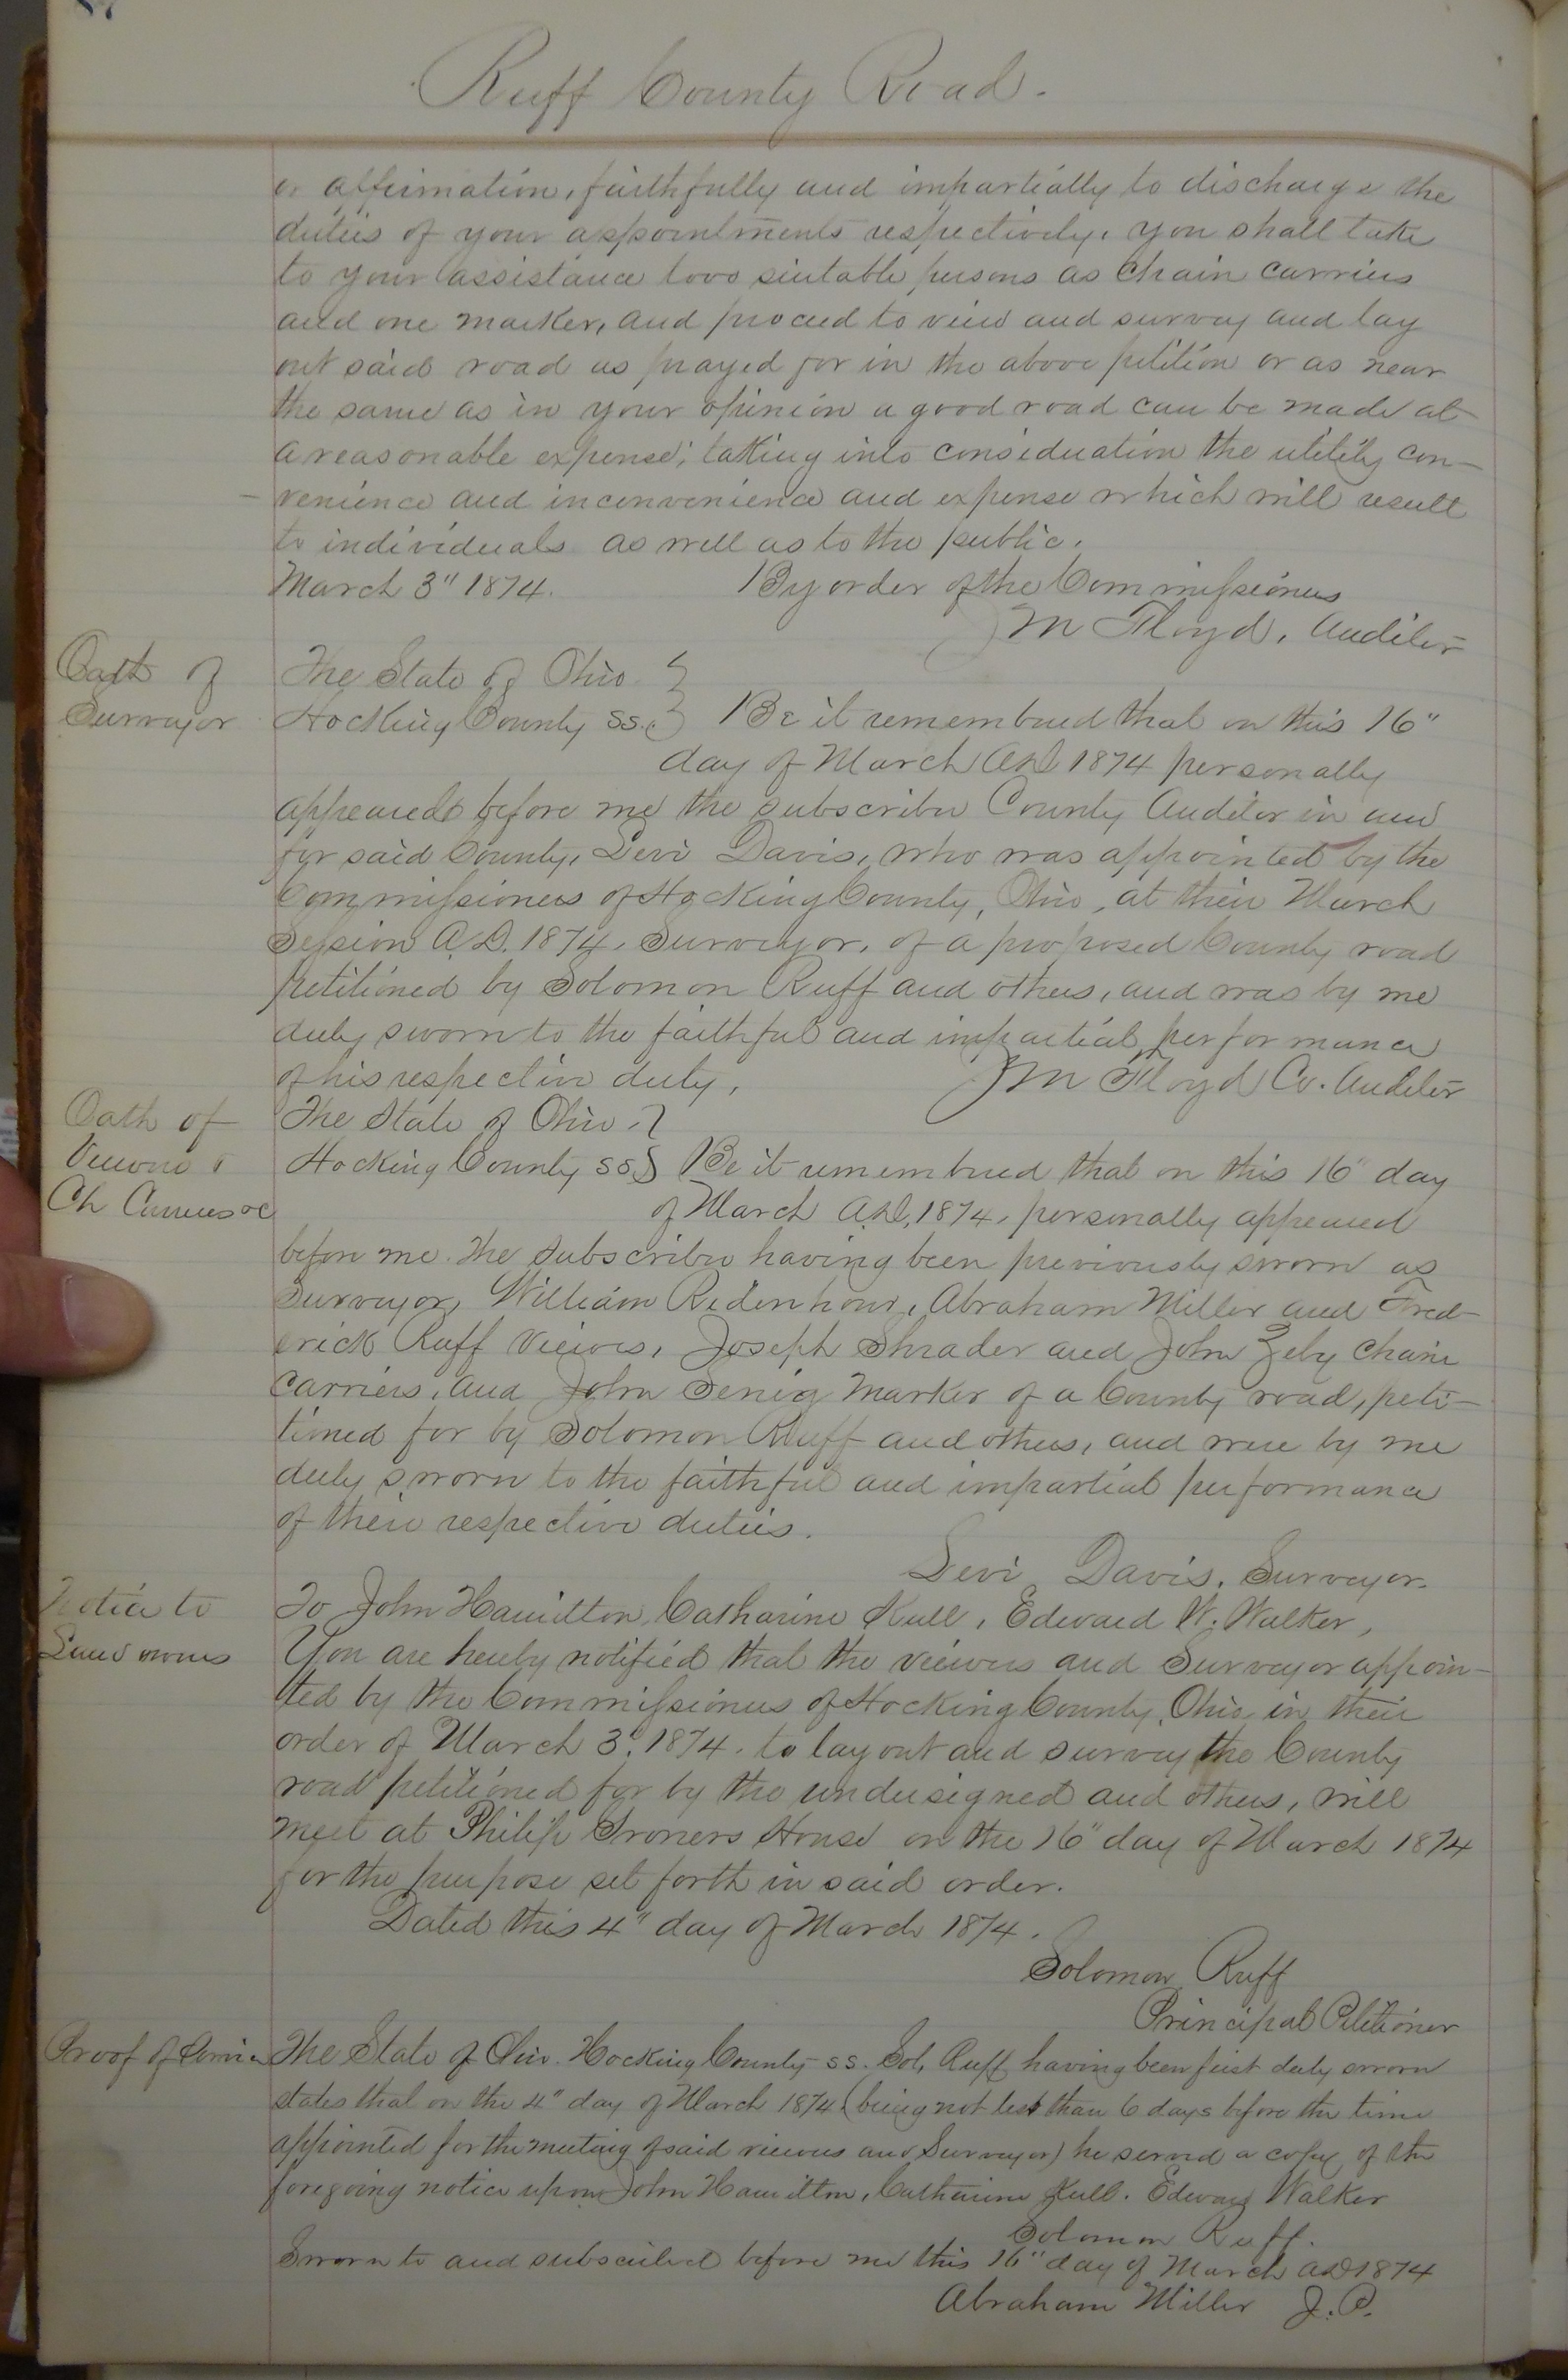 Ruff County Road.
or affirmation, faithfully and impartially to discharge the
duties of your appointments respectively, you shall take
to your assistance two suitable persons as Chain Carriers
and one marker, and proceed to view and survey and lay
out said road as prayed for in the above petition or as near
the same as in your opinion a good road can be made at
a reasonable expense; taking into consideration the utility con-
-venience and inconvenience and expense which will result
to individuals as well as to the public.
March 3" 1874. By order of the Commissioners
M Floyd, Auditor
Oath of
Surveyor
The State of Ohio }
Hocking County ss. } Be it remembered that on this 16"
day of March A.D. 1874 personally
appeared before me the subscriber County Auditor in and
for said County, Levi Davis, who was appointed by the
Commissioners of Hocking County, Ohio, at their March
Session A.D. 1874, Surveyor, of a proposed County road
petitioned by Solomon Ruff and others, and was by me
duly sworn to the faithful and impartial performance
of his respective duty, M Floyd Co. Auditor
Oath of
Viewers &
Ch Carriers &c
The State of Ohio, }
Hocking County ss } Be it remembered that on this 16" day
of March A.D, 1874, personally appeared
before me the subscriber having been previously sworn as
Surveyor, William Ridenhour, Abraham Miller and Fred-
erick Ruff Viewers, Joseph Shrader and John Zeby Chain
Carriers, and John Senig Marker of a County road, peti-
tioned for by Solomon Ruff and others, and were by me
duly sworn to the faithful and impartial performance
of their respective duties.
Levi Davis, Surveyor.
Notice to
Land owners
To John Hamilton, Catharine Kull, Edward W. Walker,
You are hereby notified that the viewers and Surveyor appoin-
ted by the Commissioners of Hocking County, Ohio in their
order of March 3d 1874, to lay out and survey the County
road petitioned for by the undersigned and others, will
meet at Philip House on the 16" day of March 1874
for the purpose set forth in said order.
Dated this 4" day of March 1874.
Solomon Ruff
Principal Petitioner
Proof of Service
The State of Ohio. Hocking County ss. Sol, Ruff having been first duly sworn
states that on the 4" day of March 1874 (being not less than 6 days before the time
appointed for the meeting of said viewers and Surveyor) he served a copy of the
foregoing notice upon John Hamilton, Catharine Kull. Edward Walker
Solomon Ruff.
Sworn to and subscribed before me this 16" day of March A.D 1874
Abraham Miller J.P.